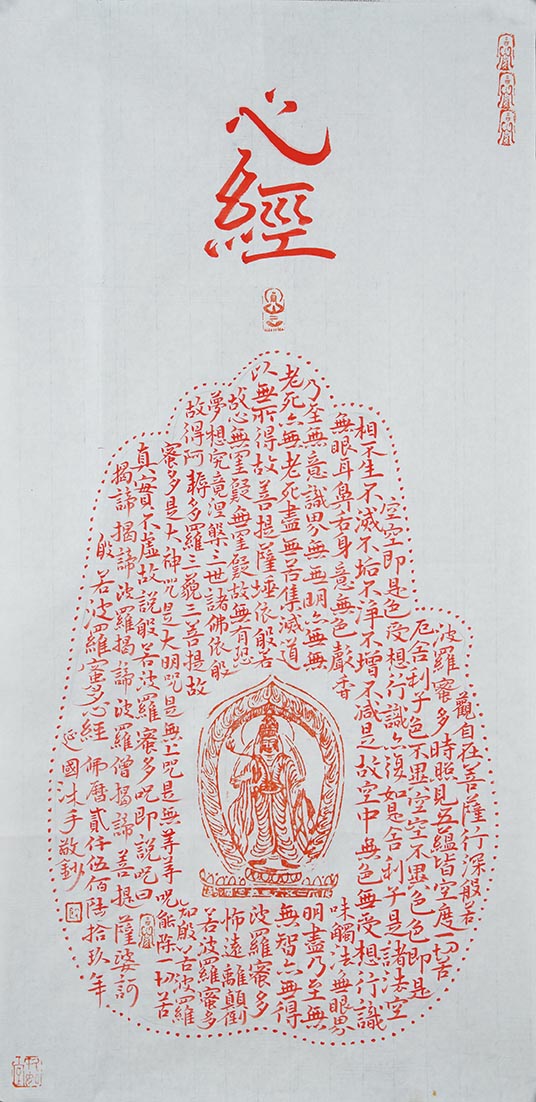 心經
觀自在菩薩行深般若
波羅蜜多時照見五蘊皆空度一切苦
厄舍利子色不異空空不異色色即是
空空即是色受想行識亦復如是舍利子是諸法空
相不生不滅不垢不淨不增不減是故空中無色無受想行識
無眼耳鼻舌身意無色聲香味觸法無眼界
乃至無意識界無無明亦無無明盡乃至無
老死亦無老死盡無苦集滅道無智亦無得
以無所得故菩提薩埵依般若波羅蜜多
故心無罣礙無罣礙故無有恐怖遠離顛倒
夢想究竟涅槃三世諸佛依般若波羅蜜多
故得阿耨多羅三藐三菩提故知般若波羅
蜜多是大神咒是大明咒是無上咒是無等等呪能除一切苦
真實不虛故說般若波羅蜜多呪即說呪曰
揭諦揭諦波羅揭諦波羅僧揭諦菩提薩婆訶
般若波羅蜜多心經 佛曆貳仟伍佰陸拾玖年
延國沐手敬鈔